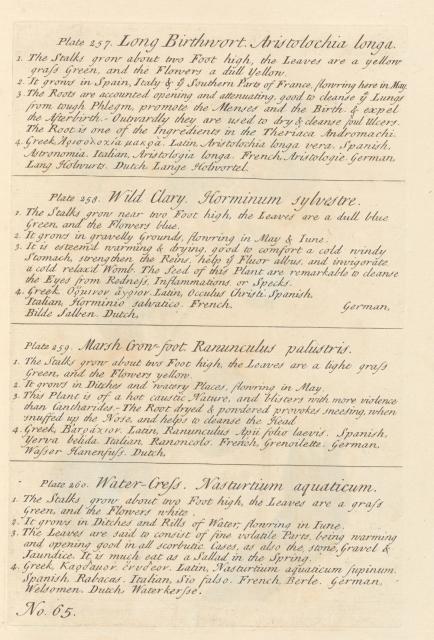 Plate 257. Long Birthwort. Aristolochia longa.
1. The Stalks grow about two Foot high, the Leaves are a yellow
graſs Green, and the Flowers a dull Yellow.
2. It grows in Spain, Italy & ỹ Southern Parts of France, flowring here in May.
3. The Roots are accounted opening and attenuating, good to cleanse ỹ Lungs
from tough Phlegm, promote the Menses and the Birth & expel
the Afterbirth. Outwardly they are used to dry & cleanse foul Ulcers.
The Root is one of the Ingredients in the Theriaca Andromachi.
4. Greek, Αρισολοχία μακρα. Latin, Aristolochia longa vera. Spanish,
Astronomia. Italian, Aristologia longa. French, Aristologie. German,
Lang Holwurts. Dutch, Lange Holwortel.
Plate 258. Wild Clary. Horminum sylvestre.
1. The Stalks grow near two Foot high, the Leaves are a dull blue
Green, and the Flowers blue.
2. It grows in gravelly Grounds, flowring in May & Iune.
3. It is esteem'd warming & drying, good to comfort a cold windy
Stomach, strengthen the Reins, help ỹ Fluor albus, and invigorate
a cold relax'd Womb. The Seed of this Plant are remarkable to cleanse
the Eyes from Redneſs, Inflammations, or Specks.
4. Greek, Ορμινον αγριον. Latin, Occulus Christi. Spanish,
Italian, Horminio salvatico. French, German,
Bilde Salben. Dutch,
Plate 259. Marsh Crow-foot. Ranunculus palustris.
1. The Stalks grow about two Foot high, the Leaves are a light graſs
Green, and the Flowers yellow.
2. It grows in Ditches and watery Places, flowring in May.
3. This Plant is of a hot caustic Nature, and blisters with more violence
than Cantharides. The Root dryed & powdered provokes sneesing, when
snuffed up the Nose, and helps to cleanse the Head.
4. Greek, Βατράχιον. Latin, Ranunculus Apii folio laevis. Spanish,
Yerva belida. Italian, Ranoncolo. French, Grenoilette. German,
Waſser Hanenfuſs. Dutch,
Plate 260. Water-Creſs. Nasturtium aquaticum.
1. The Stalks grow about two Foot high, the Leaves are a graſs
Green, and the Flowers white.
2. It grows in Ditches and Rills of Water, flowring in Iune.
3. The Leaves are said to consist of fine volatile Parts, being warming
and opening good in all scorbutic Cases, as also the stone, Gravel &
Jaundice. It is much eat as a Sallad in the Spring.
4. Greek, Καρδαμον ενυδρον. Latin, Nasturtium aquaticum supinum.
Spanish, Rabacas. Italian, Sio falso. French, Berle. German,
Welsomen. Dutch, Waterkerſse.
No. 65.